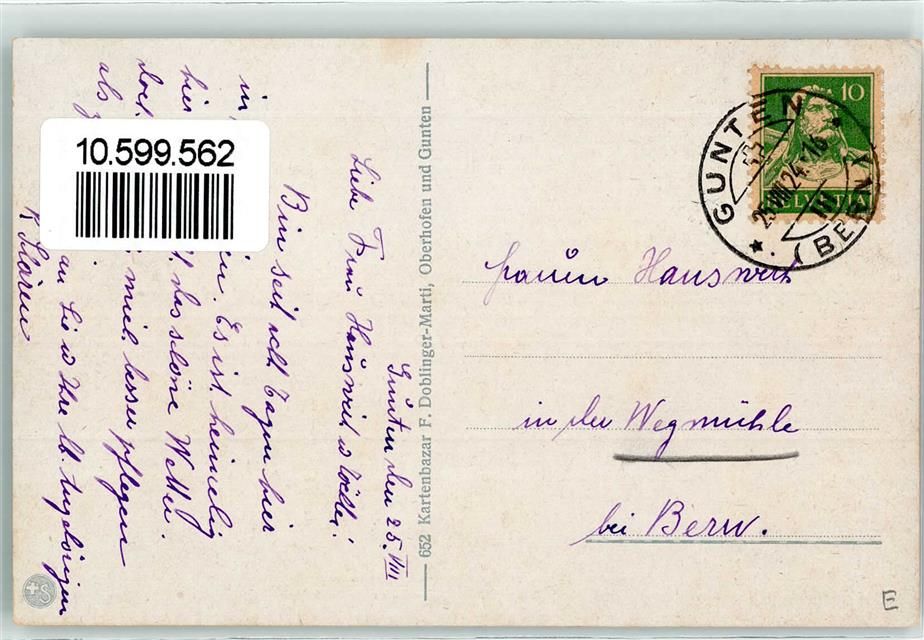 Gunten den 25. VIII
Liebe Frau Hauswirt
Bin seit acht Tagen hier
in
Es ist heimelig
hier das schöne Wetter.
doch mich besser pflegen
als
an Sie u Ihre lb. Angehörigen
10.599.562
652 Kartenbazar F. Doblinger-Marti, Oberhofen und Gunten
10
HELVETIA
GUNTEN
25.VIII.24.-16
(BERN)
Frauen Hauswirt
in der Wegmühle
bei Bern.
S
E